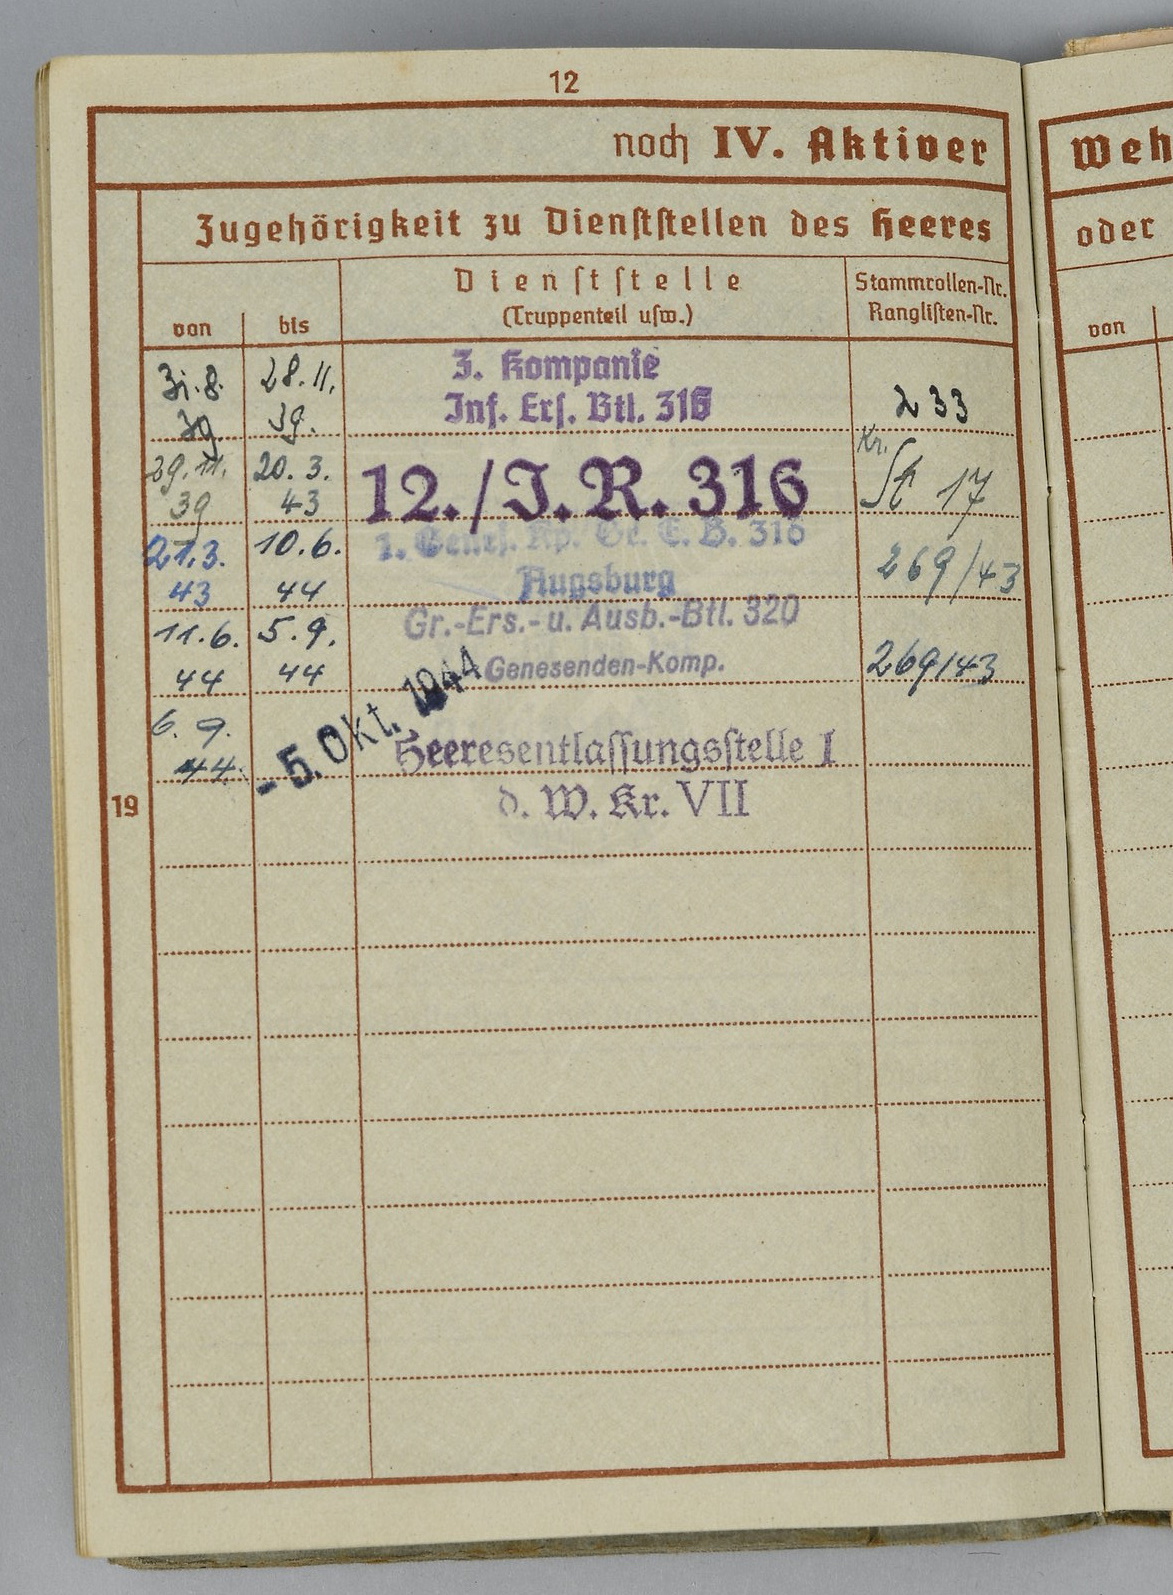 12
noch IV. Aktiver
Zugehörigkeit zu Dienststellen des Heeres
von
bis
Dienststelle
(Truppenteil usw.)
Stammrollen-Nr.
Ranglisten-Nr.
31.8.
39
28.11.
39.
3. Kompanie
Inf. Ers. Btl. 316
233
29.11.
39
20.3.
43
12./I.R. 316
Kr.
St 17
21.3.
43
10.6.
44
1. Genes. Kp. Gr. E. B. 316
Augsburg
269/43
11.6.
44
5.9.
44
Gr.-Ers.- u. Ausb.-Btl. 320
Genesenden-Komp.
269/43
6.9.
44.
-5. Okt. 1944
Heeresentlassungsstelle I
d. W. Kr. VII
19
Weh
oder
von